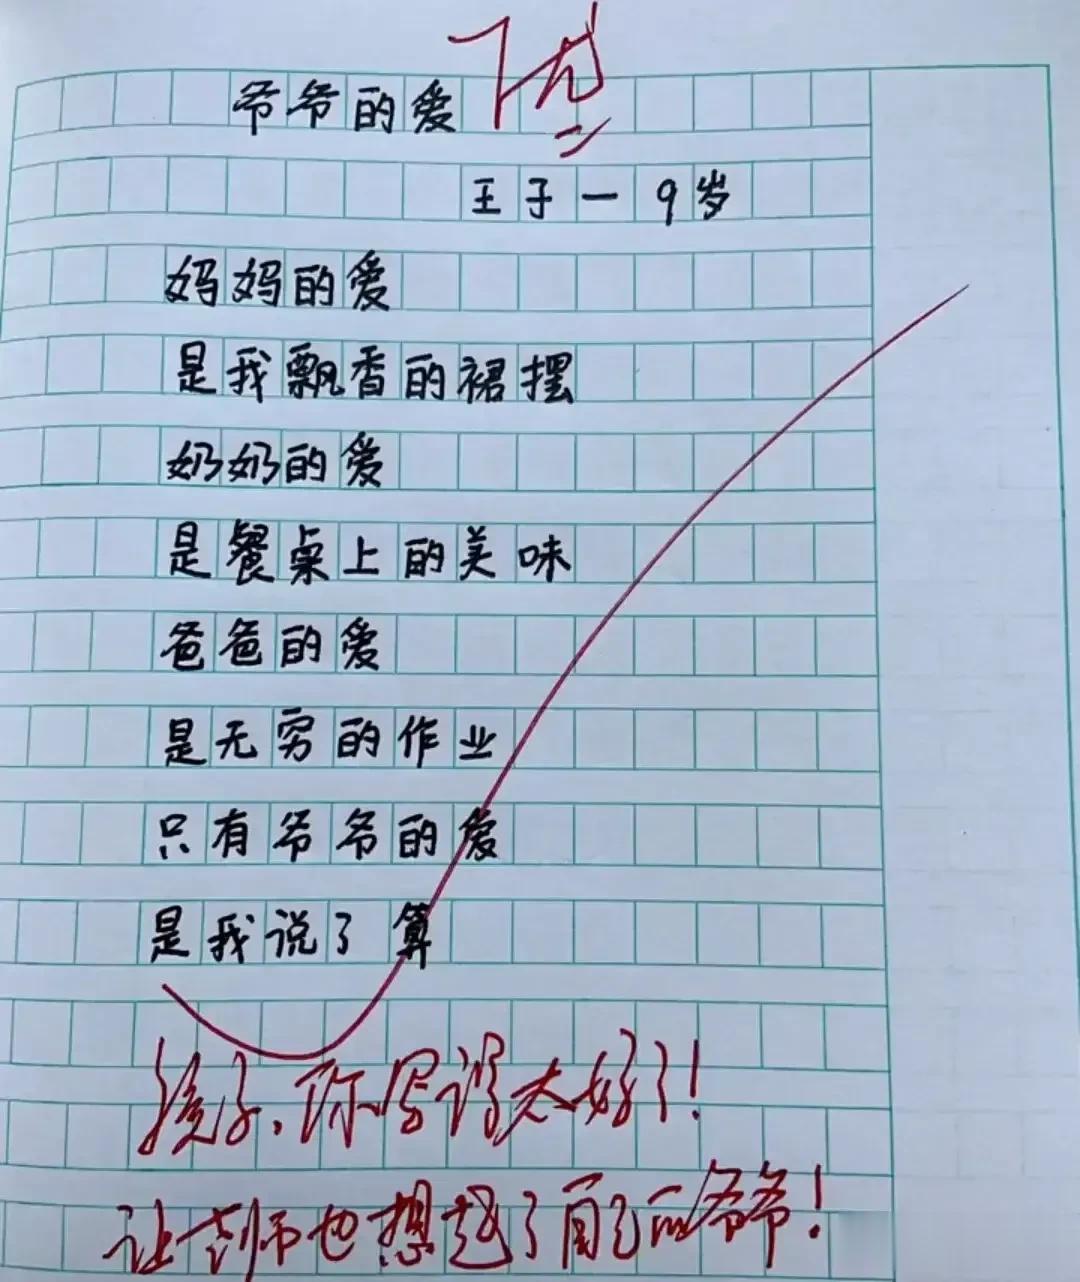 爷爷的爱 优
王子一 9岁
妈妈的爱
是我飘香的裙摆
奶奶的爱
是餐桌上的美味
爸爸的爱
是无穷的作业
只有爷爷的爱
是我说了算
孩子,你写得太好了!
让老师也想起了自己的爷爷!